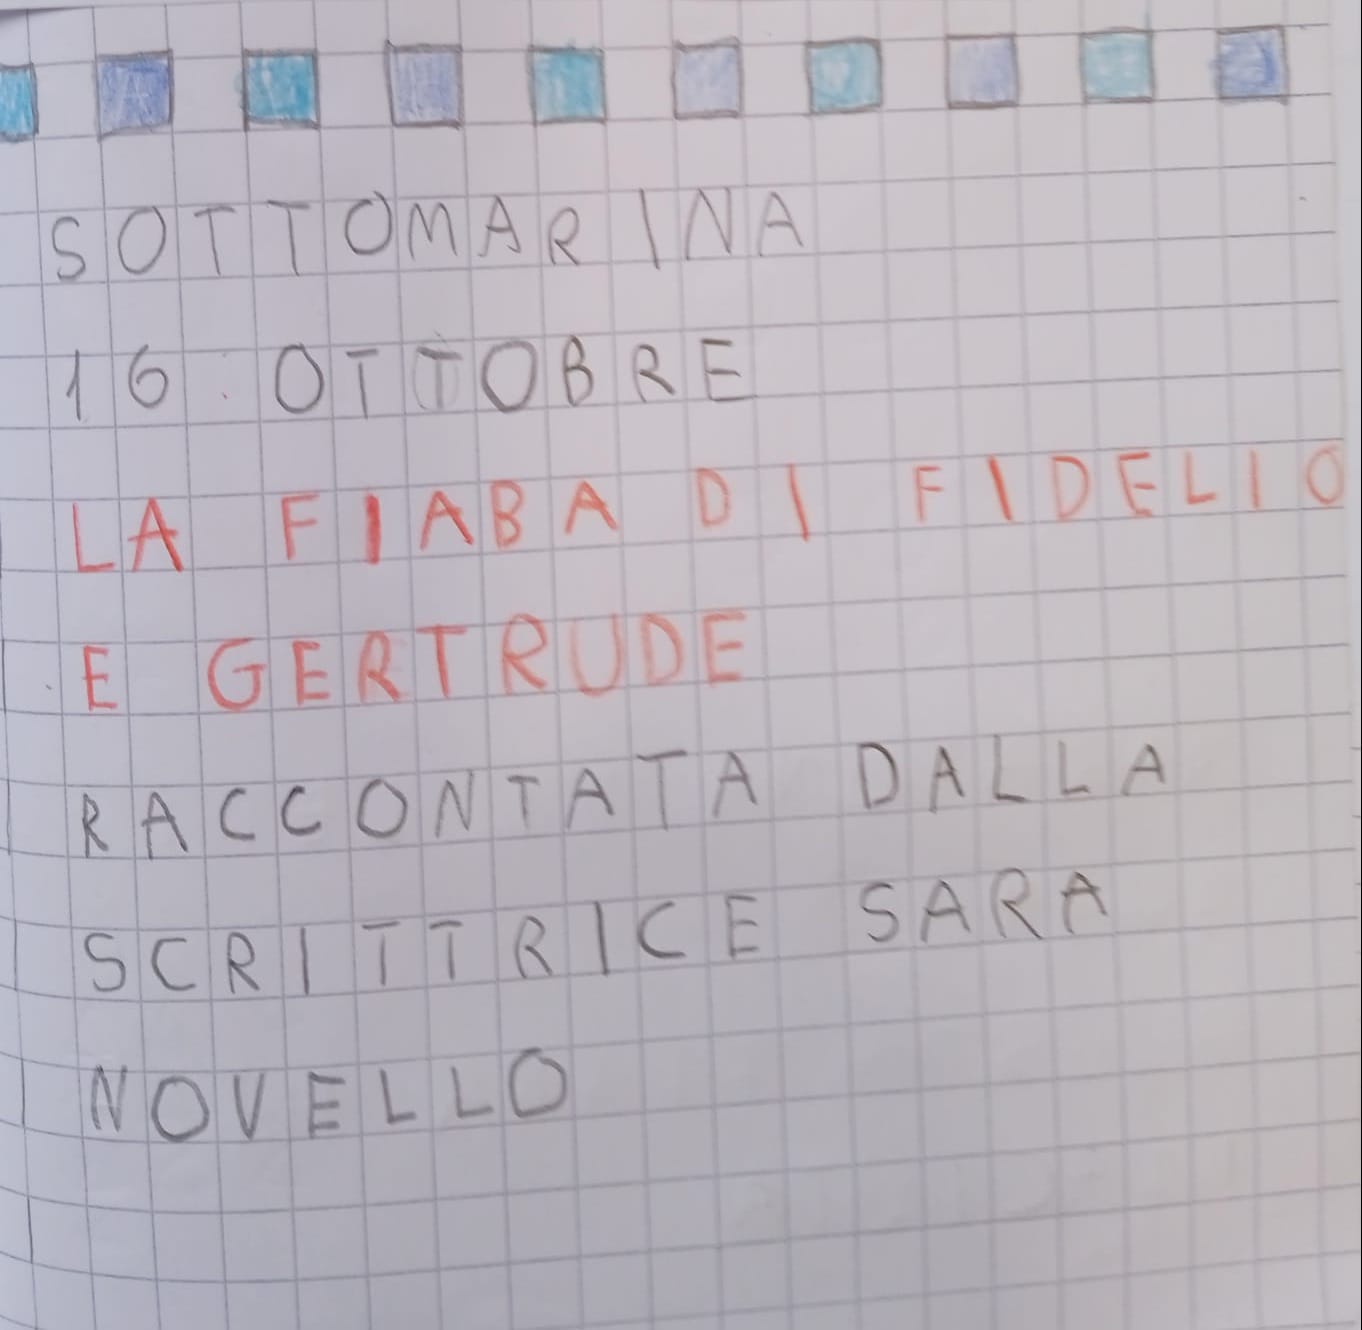 SOTTOMARINA
16 OTTOBRE
LA FIABA DI FIDELIO
E GERTRUDE
RACCONTATA DALLA
SCRITTRICE SARA
NOVELLO